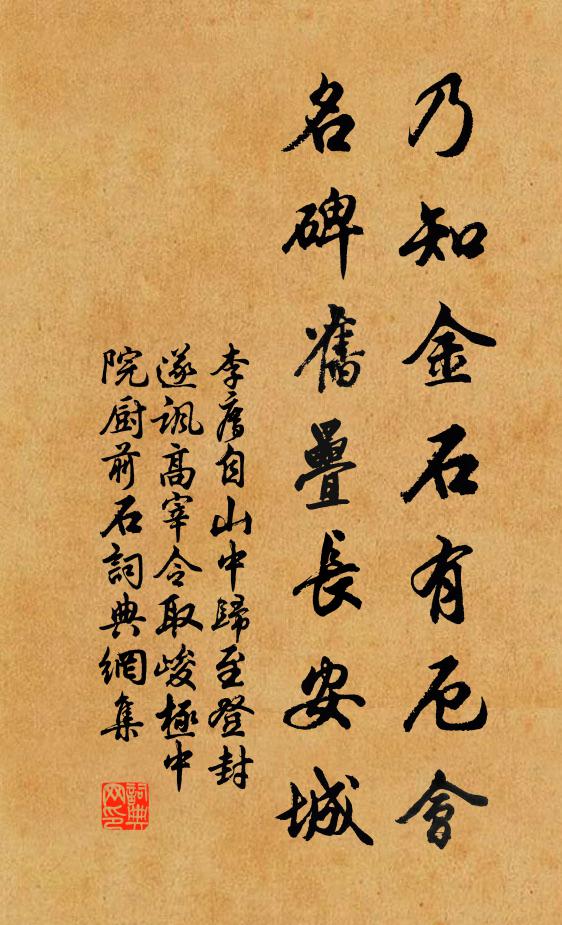 乃知金石有厄會
名碑舊疊長安城
李廌自山中歸至登封
遂訊高宰令取峻極中
院厨前石詞典網集
詞典
网印